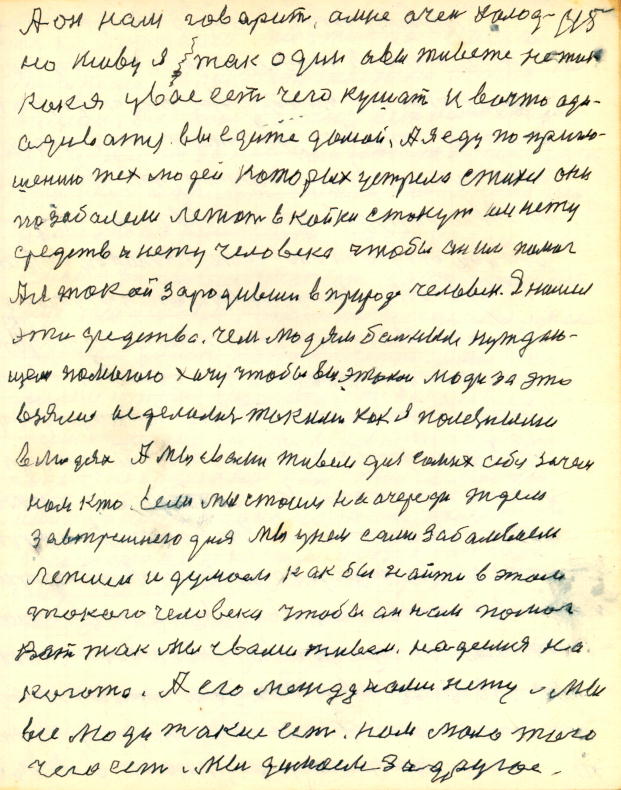 А он нам говарит, а мне очен холод- 45
но живу я так один а вы живете не так
как я у вас есть чего кушат и вочто оди-
адиватца. вы едите дамой, А я еду по пригло-
шению тех людей которых устрело стихия они
позабалели лежат в койки стонут им нету
средств и нету человека чтобы он им помог
А я такой зародивши в природе человек. Я нашел
эти средства. чем людям больным нуждаю-
щем помогаю хочу чтобы вы этакии люди за это
взялис и делалис такими как я полезными
в людях А мы свами живем для самих себя зачем
нам кто. если мы стоим на очереди ждем
завтрешнего дня мы у нем сами забалеваем
лежим и думаем как бы найти в этом
такого человека чтобы он нам помог
Вот так мы свами живем. надеимся на
когото. А его между нами нету. Мы
все люди такие ест. нам мало того
чего ест. Мы думаем за другое.